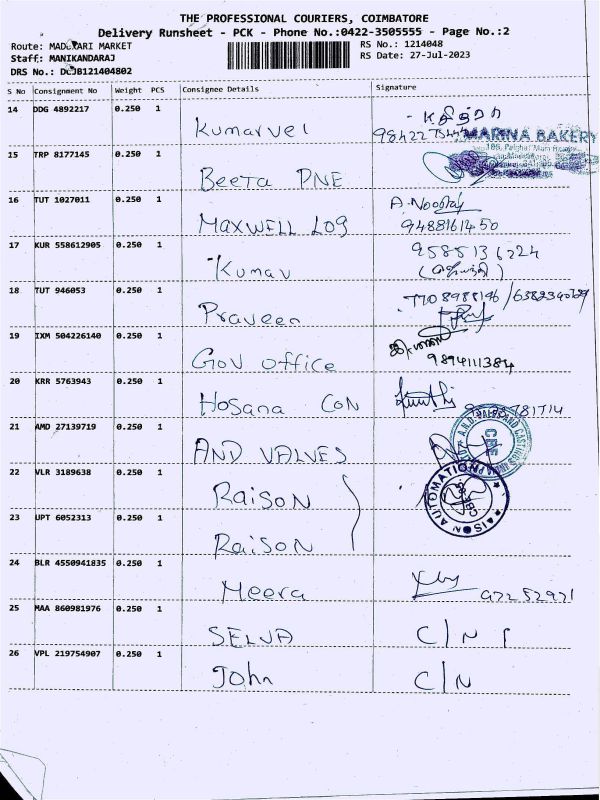 THE PROFESSIONAL COURIERS, COIMBATORE
Delivery Runsheet - PCK - Phone No.:0422-3505555 - Page No.:2
Route: MADUKARI MARKET
RS No.: 1214048
Staff: MANIKANDARAJ
RS Date: 27-Jul-2023
DRS No.: DCJB121404802
S No Consignment No Weight PCS Consignee Details Signature
14 DDG 4892217 0.250 1 Kumarvel
MARINA BAKERY
15 TRP 8177145 0.250 1 Beeta PNE
16 TUT 1027011 0.250 1 MAXWELL LOG A. 9488161450
17 KUR 558612905 0.250 1 Kumar 9585136224
18 TUT 946053 0.250 1 Praveen
19 IXM 504226140 0.250 1 Gov office 9894111384
20 KRR 5763943 0.250 1 Hosana CON
21 AMD 27139719 0.250 1 AND VALVES
22 VLR 3189638 0.250 1 Raison RAISON AUTOMATION CBE
23 UPT 6052313 0.250 1 Raison
24 BLR 4550941835 0.250 1 Meera
25 MAA 860981976 0.250 1 SELVA C/N
26 VPL 219754907 0.250 1 John C/N